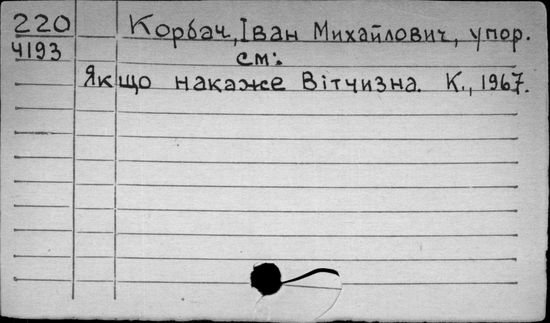 220 Корбач, Іван Михайлович, упор.
4193 см:
Якщо накаже Вітчизна. К., 1967.